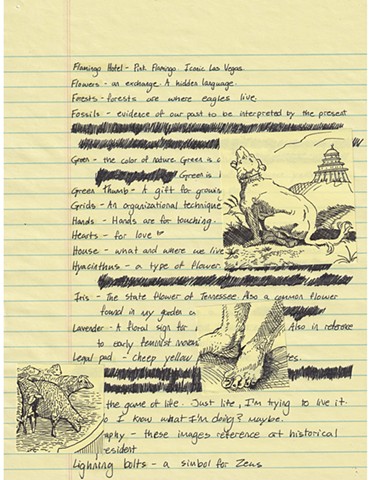 Flamingo Hotel - Pink Flamingo. Iconic Las Vegas.
Flowers - an exchange. A hidden language.
Forests - forests are where eagles live.
Fossils - evidence of our past to be interpreted by the present
Green - the color of nature. Green is
Green is
Green Thumb - A gift for
Grids - An organizational technique
Hands - Hands are for touching.
Hearts - for love
House - what and where we live
Hyacinthus - a type of flower.
Iris - The state flower of Tennessee. Also a common flower
found in my garden
Lavender - A floral sign for Also in reference
to early feminist
Legal pad - cheep yellow
the game of life. Just life, I'm trying to live it.
I know what I'm doing? Maybe.
- these images reference at historical
Lighning bolts - a simbol for Zeus